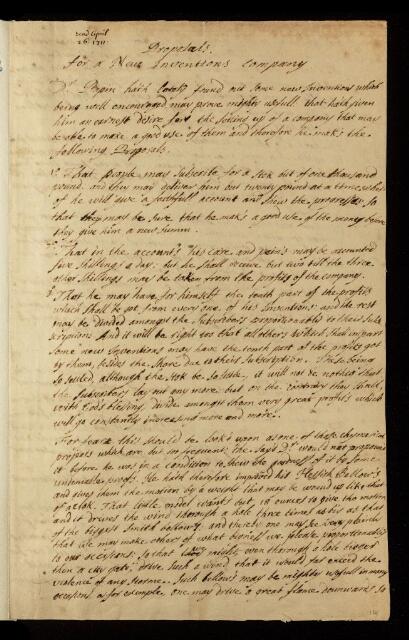 read April
26. 1711
Proposals.
for a New Inventions Company
Dr. Papin hath lately found out some new Inventions which
being well encouraged may prove mighty usefull that hath given
him an earnest desire for the setting up of a company that may
be able to make a good use of them and therefore he maks the
following Proposals.
1º That people may subscribe for a stok but of one thousand
pound, and they may deliver him but twenty pound at a time, where
of he will give a faithfull account and shew the progresse so
that they may be sure that he maks a good use of the money before
they give him a new summ.
That in the accounts his care and pain's may be accounted
five shillings a day: but he shall receive but two till the three
other shillings may be taken from the profits of the company.
That he may have for himself the tenth part of the profits
which shall be got from every one of his Inventions: and the rest
may be divided amongst the Subscribers proportionably to their Subs-
criptions And it will be right too that all others which shall impart
some new Inventions may have the tenth part of the profits got
by them, besides the share due to their Subscription. This being
so settled, although the stok be so little, it will not be needfull that
the Subscribers lay out any more but on the contrary they should,
with Gods blessing, divide amongst them very great profits which
will go constantly increasing more and more.
For feare this should be look't upon as one of these chymerical
projects which are but so frequent; the said Dr. would not propound
it before he was in a condition to shew the goodness of it by some
undeniable proofs. He hath therefore improved his Hessick bellows
and gives them the motion by a weight that may be wound up like that
of a clok. That little model wants but 12 ounces to give the motion
and it drives the wind through a hole three times as big as that
of the biggest Smiths bellows, and thereby one may see very plainly
that we may make others of what bigness we please, proportionably
to our occasions: so that we might, even through a hole bigger
then a city gate, drive such a wind that it would far exceed the
violence of any storme. Such bellows may be mighty usefull in many
occasions as for exemple, one may drive a great flame downwards so